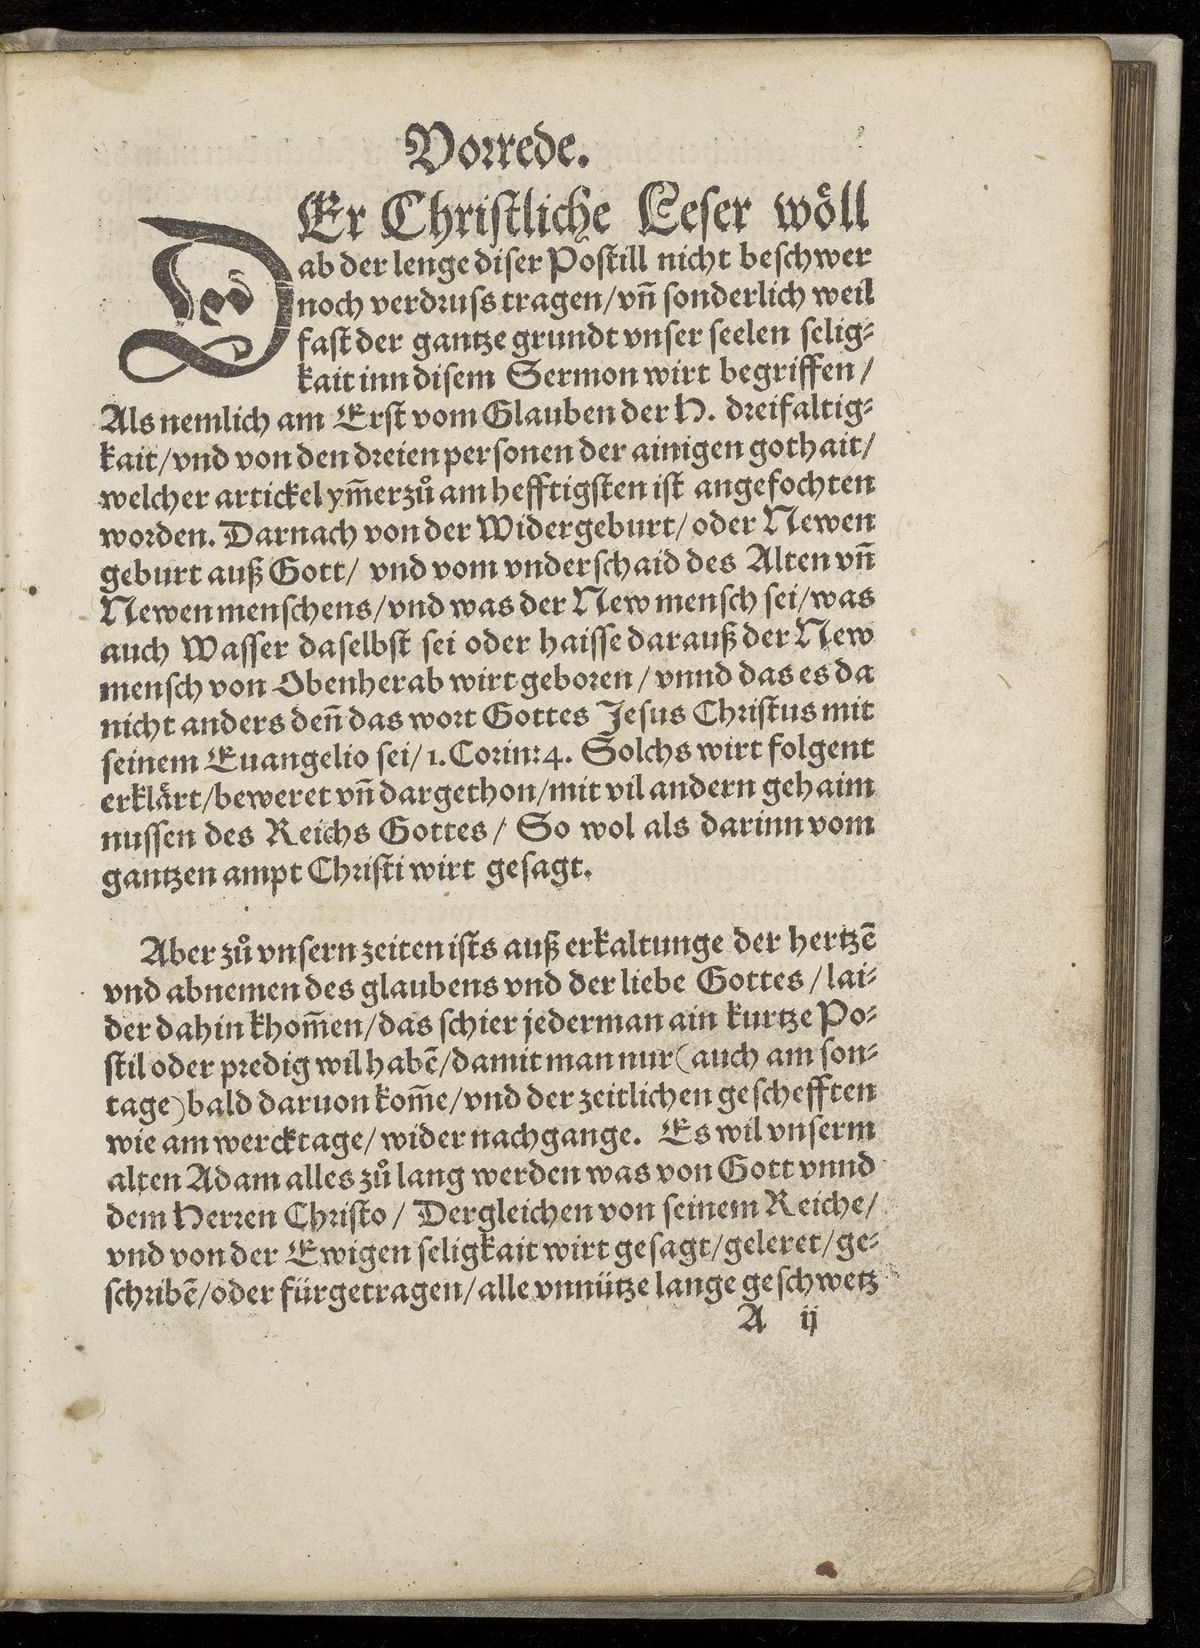 Vorrede.
DEr Christliche Leser wöll
ab der lenge diser Postill nicht beschwer
noch verdruss tragen/vn̄ sonderlich weil
fast der gantze grundt vnser seelen selig⸗
kait inn disem Sermon wirt begriffen/
Als nemlich am Erst vom Glauben der H. dreifaltig⸗
kait/vnd von den dreien personen der ainigen gothait/
welcher artickel ym̄erzů am hefftigsten ist angefochten
worden. Darnach von der Widergeburt/oder Newen
geburt auß Gott/ vnd vom vnderschaid des Alten vn̄
Newen menschens/vnd was der New mensch sei/was
auch Wasser daselbst sei oder haisse darauß der New
mensch von Obenherab wirt geboren/vnnd das es da
nicht anders den̄ das wort Gottes Jesus Christus mit
seinem Euangelio sei/1.Corin:4. Solchs wirt folgent
erklärt/beweret vn̄ dargethon/mit vil andern gehaim
nussen des Reichs Gottes/ So wol als darinn vom
gantzen ampt Christi wirt gesagt.
Aber zů vnsern zeiten ists auß erkaltunge der hertzē
vnd abnemen des glaubens vnd der liebe Gottes/lai⸗
der dahin khom̄en/das schier jederman ain kurtze Po⸗
stil oder predig wil habē/damit man nur(auch am son⸗
tage)bald daruon kom̄e/vnd der zeitlichen geschefften
wie am wercktage/wider nachgange. Es wil vnserm
alten Adam alles zů lang werden was von Gott vnnd
dem Herren Christo/ Dergleichen von seinem Reiche/
vnd von der Ewigen seligkait wirt gesagt/geleret/ge⸗
schribē/oder fürgetragen/alle vnnütze lange geschwetz
A ij